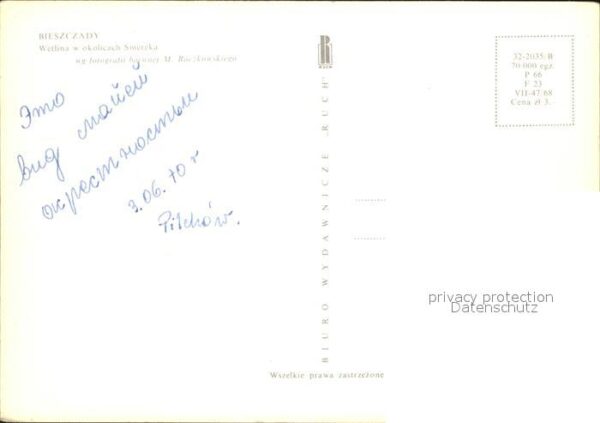 BIESZCZADY
Wetlina w okolicach Smereka
wg fotografii barwnej M. Raczkowskiego
Это
вид
окрестностьи
3.06.70 г
Pilchów.
BIURO WYDAWNICZE „RUCH”
32-2035/B
70 000 egz.
P 66
F 23
VII-47/68
Cena zł 3,-
privacy protection
Datenschutz
Wszelkie prawa zastrzeżone